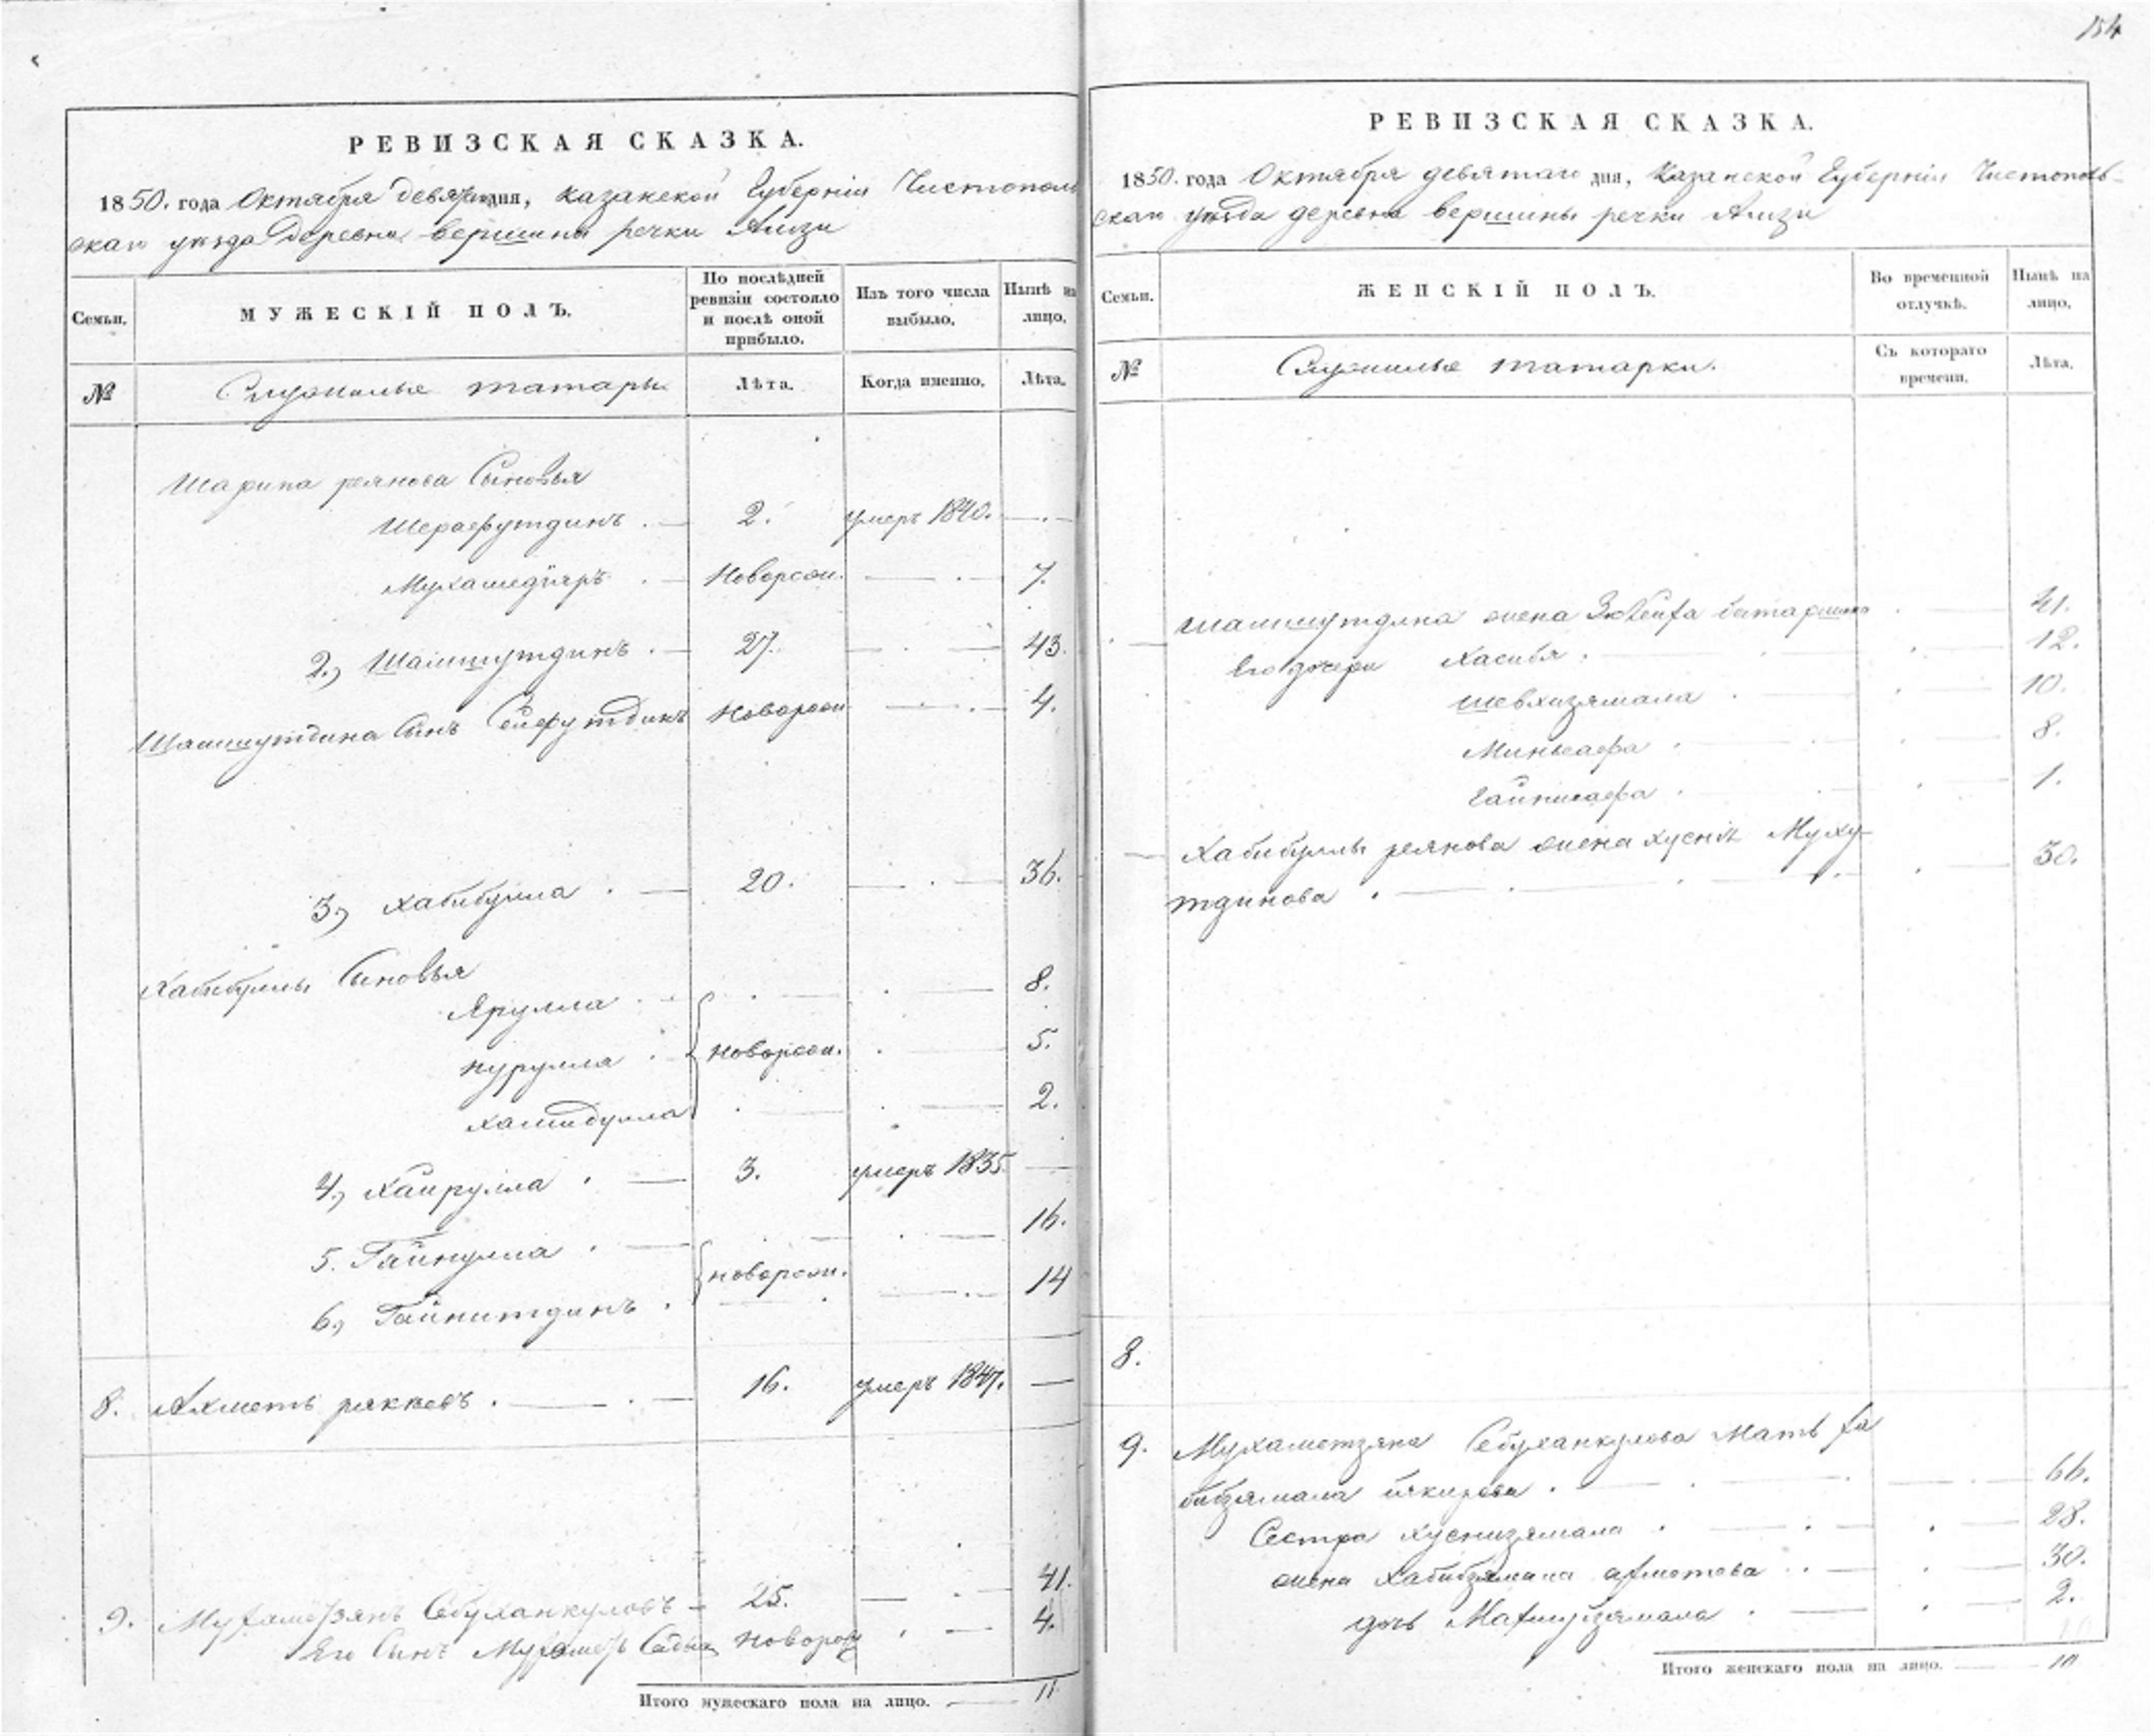 154
РЕВИЗСКАЯ СКАЗКА.
1850. года Октября девятаго дня, Казанской Губерніи Чистополь
скаго уезда деревни вершины речки Амзи
Семьи.
МУЖЕСКІЙ ПОЛЪ.
По послѣдней ревизіи состояло и послѣ оной прибыло.
Изъ того числа выбыло.
Нынѣ на лицо.
№
Служилые татары
Лѣта.
Когда именно.
Лѣта.
Шарипа реянова Сыновья
Шерафутдинъ . — 2. умеръ 1840. — . —
Мухамедіяръ . — Новорож. — . — 7.
2., Шамшутдинъ . — 27. — . — 43.
Шамшутдина Сынъ Сейфутдинъ Новорож — . — 4.
3., Хабибулла . — 20. — . — 36.
Хабибуллы Сыновья
Ярулла . — . — 8.
нурулла . новорож. . — 5.
хамидулла . — . — 2.
4., Хайрулла . — 3. умеръ 1835 —
5. Гайнулла . — . — 16.
новорож.
6., Гайнитдинъ . — . — 14
8. Ахметь реккевъ . — . — 16. умеръ 1847. —
9. Мухаметзянъ Себуханкуловъ — 25. — . — 41.
Его Сынъ Мухаметь Садык новорож . — 4.
Итого мужескаго пола на лицо. — 11
РЕВИЗСКАЯ СКАЗКА.
1850. года Октября девятаго дня, Казанской Губерніи Чистополь-
скаго уезда деревни вершины речки Амзи
Семьи.
ЖЕНСКІЙ ПОЛЪ.
Во временной отлучкѣ.
Нынѣ на лицо.
№
Служилые татарки.
Съ котораго времени.
Лѣта.
Шамшутдина жена . — 41.
Его дочери Хасибя . — . — 12.
Шевхизямала . — . — 10.
Миньсафа . — . — 8.
Гайнисафа . — . — 1.
— Хабибуллы реянова жена хусня Муху-
тдинова . — . — 30.
8.
9. Мухаметзяна Себуханкулова Мать ха
бибзямала бикирова . — . — 66.
Сестра хуснизямала . — . — 28.
жена Хабибзямала ахметова . . — . — 30.
дочь Махмубзямала . — . — 2.
Итого женскаго пола на лицо. — 10